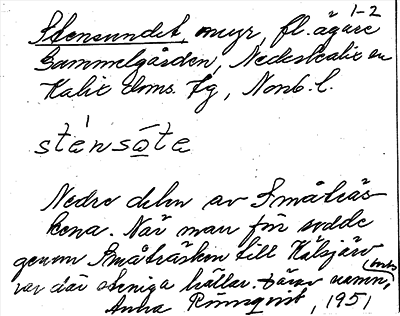 1-2
Stensundet, myr, fl. ägare
Gammelgården, Nederkalix sn
Kalix doms. tg, Norrb. l.
sténsōte
Nedre delen av Småträs
kena. När man för rodde
genom Småträsken till Kälsjärv
var där steniga hällar. Därav namn,
Anna Rönnqvist, 1951